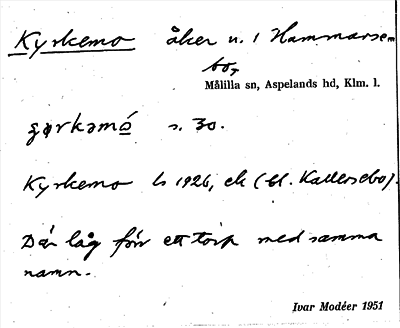 Kyrkemo åker u. 1 Hammarse-
bo,
Målilla sn, Aspelands hd, Klm. l.
s. 30.
Kyrkemo ls 1926, ek (bl. Kallersebo).
Där låg förr ett torp med samma
namn.
Ivar Modéer 1951